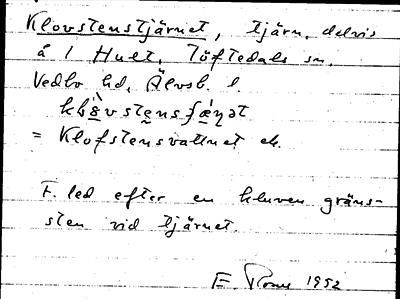 Klovstenstjärnet, tjärn, delvis
å 1 Hult, Töftedals sn
Vedbo hd, Älvsb. l.
= Klofstensvattnet ek.
F. led efter en kluven gräns-
sten vid tjärnet.
E. 1952